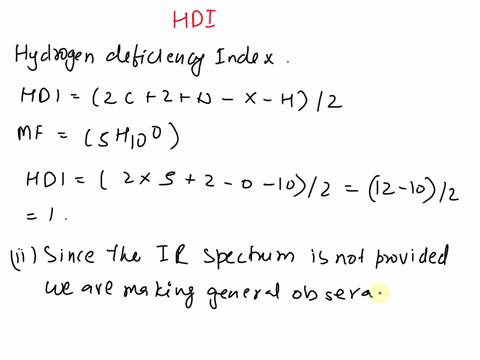 HDI
Hydrogen deficiency Index.
HDI = (2C+2+N-X-H)/2
MF = C5H10O
HDI = (2×5+2-0-10)/2 = (12-10)/2
= 1.
(ii) Since the IR Spectrum is not provided
we are making general observa